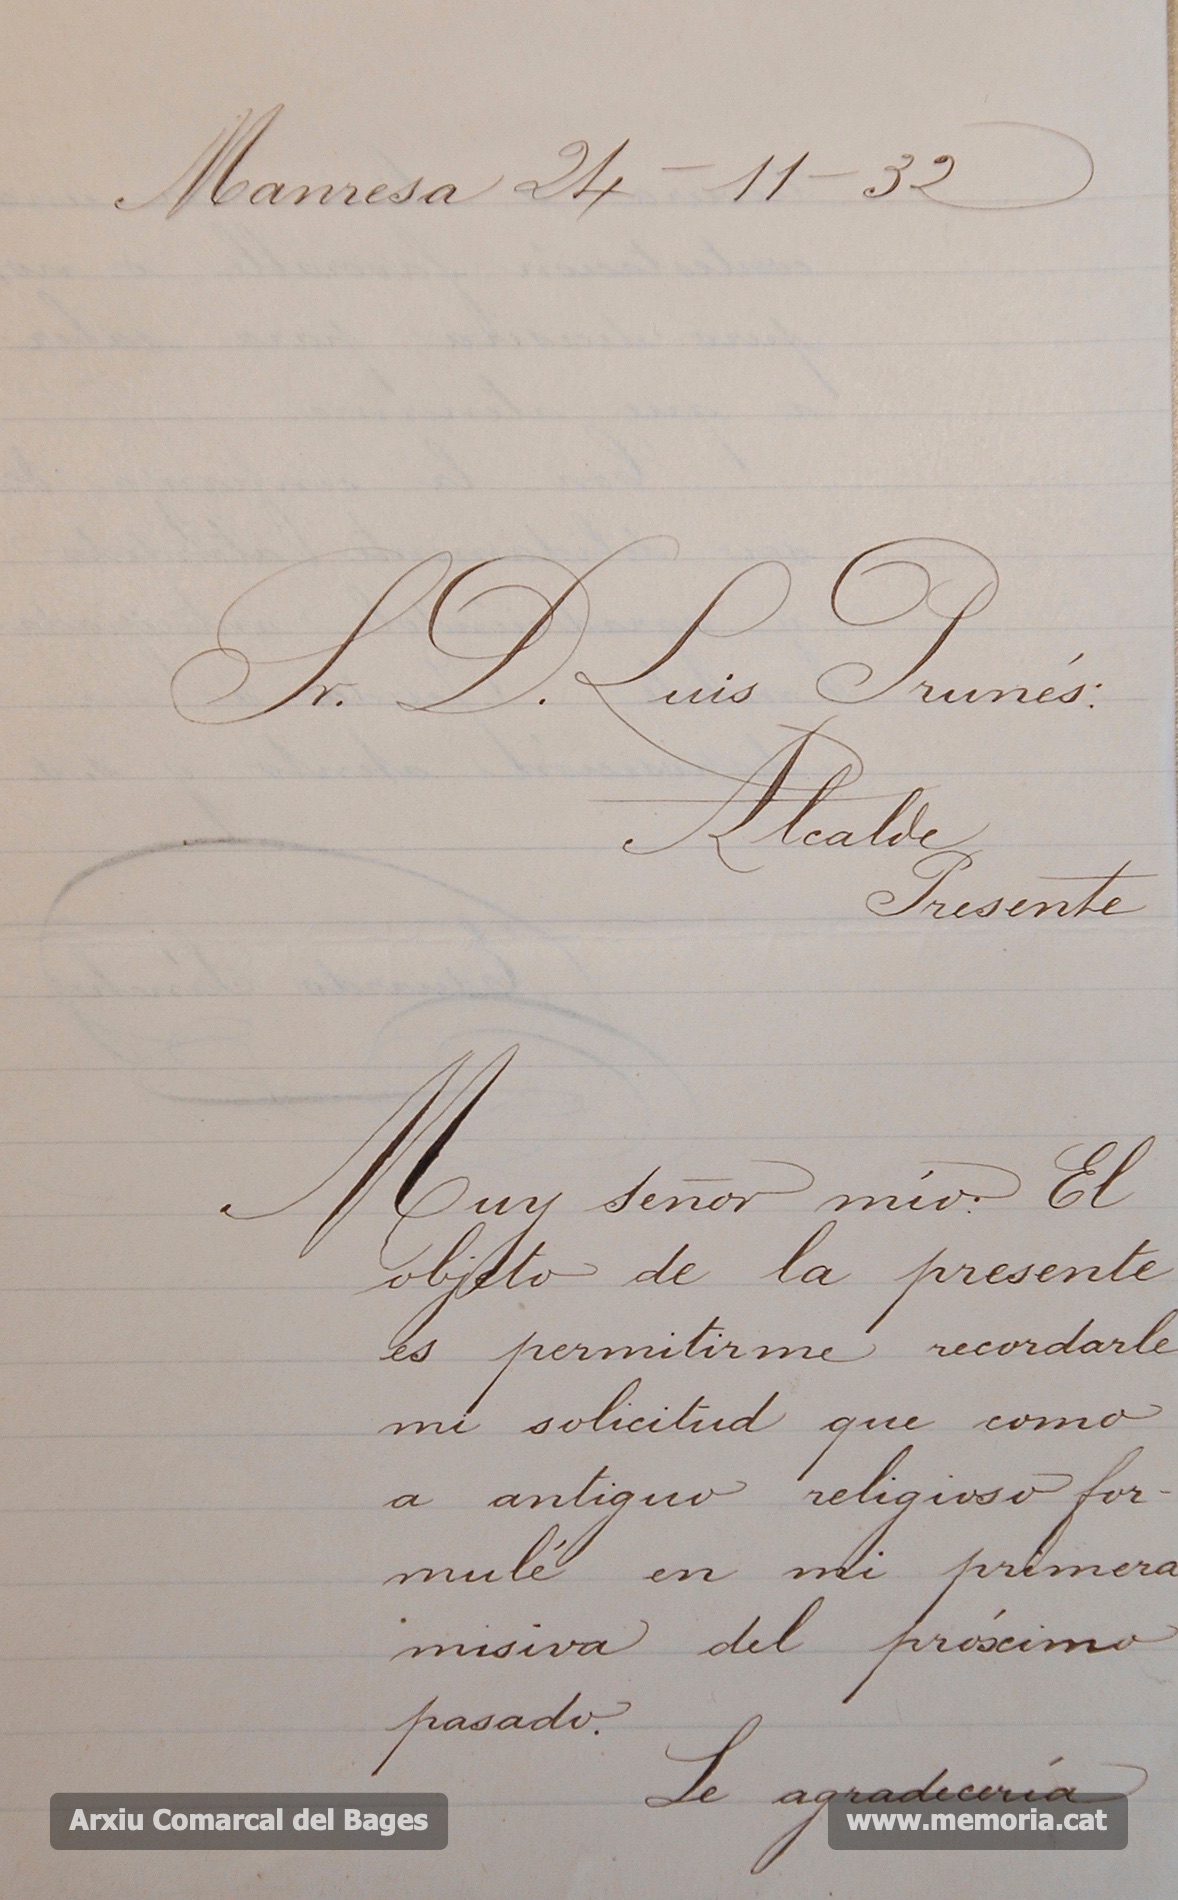 Manresa 24 - 11 - 32
Sr. D. Luis Prunés:
Alcalde
Presente
Muy señor mío: El
objeto de la presente
es permitirme recordarle
mi solicitud que como
a antiguo religioso for-
mulé en mi primera
misiva del próximo
pasado.
Le agradecería
Arxiu Comarcal del Bages
www.memoria.cat